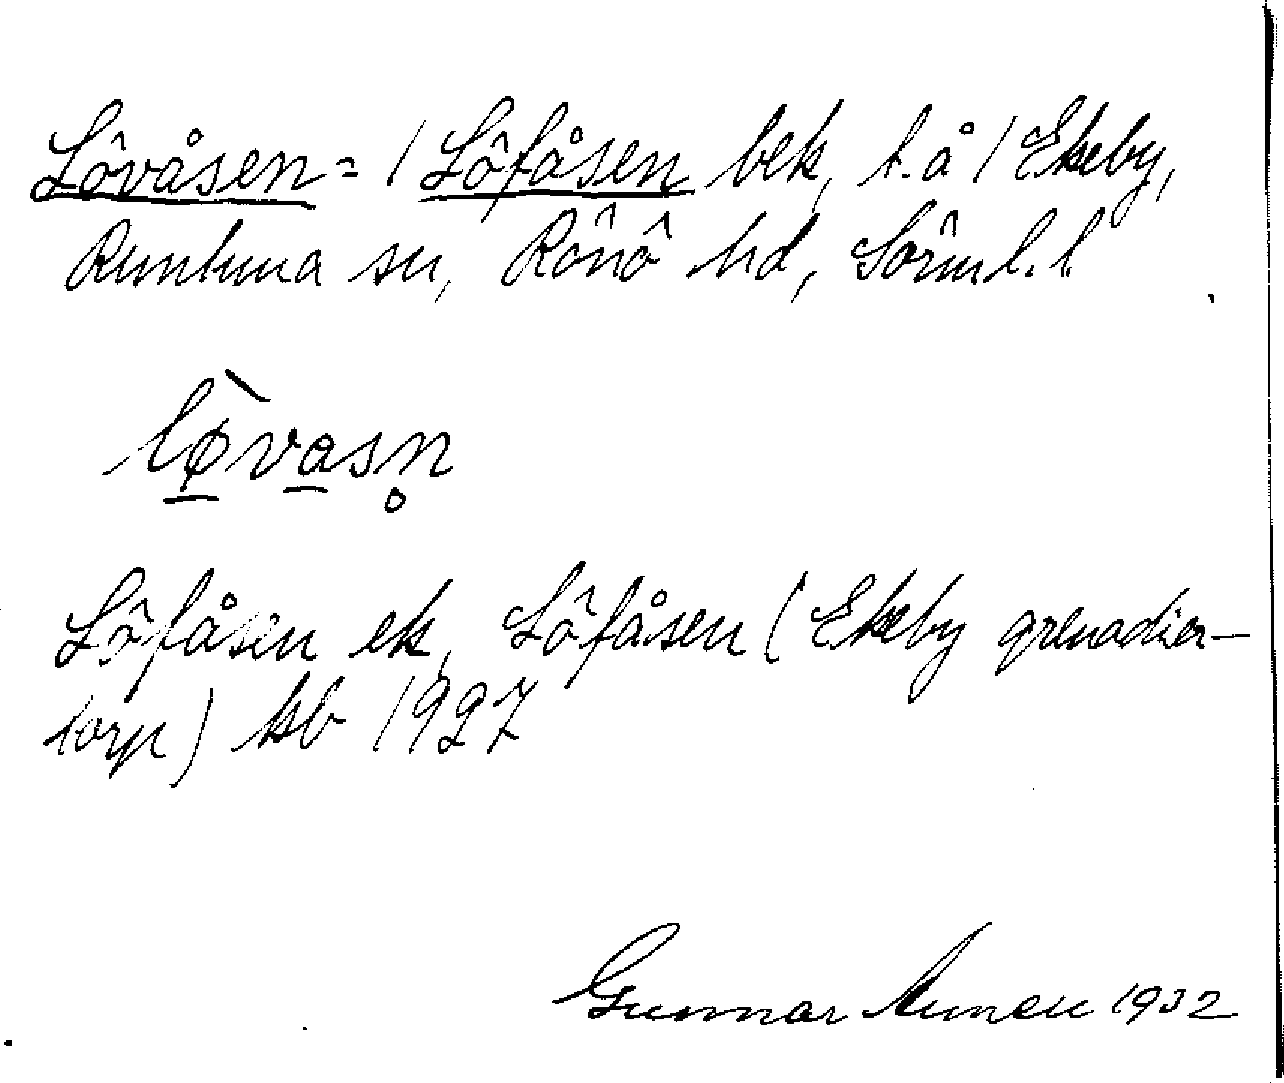 Lövåsen = / Löfåsen bek, t. å / Ekeby,
Runtuna sn, Rönö hd, Sörml. l
lø̱̀va̱sn̥
Löfåsen ek, Löfåsen (Ekeby grenadier-
torp) kb 1927
Gunnar 1932